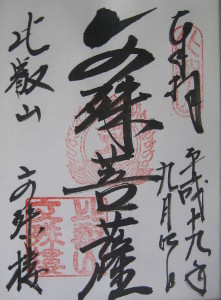 奉拝
平成十九年
九月四日
文殊菩薩
比叡山
文殊楼
比叡山
文殊楼